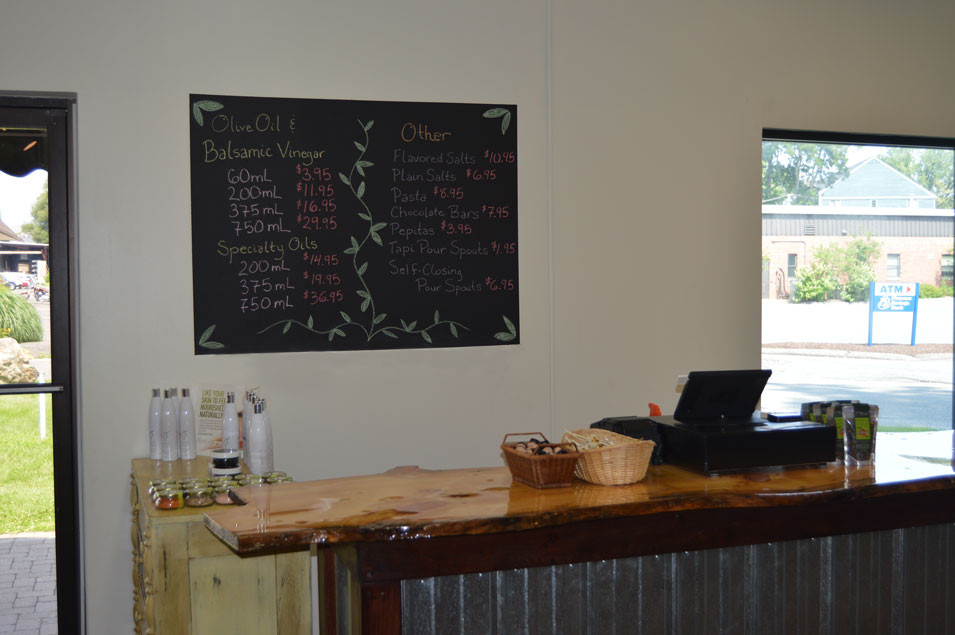 Olive Oil &
Balsamic Vinegar
60mL $3.95
200mL $11.95
375mL $16.95
750mL $29.95
Specialty Oils
200mL $14.95
375mL $19.95
750mL $36.95
Other
Flavored Salts $10.95
Plain Salts $6.95
Pasta $8.95
Chocolate Bars $7.95
Pepitas $3.95
Tapi Pour Spouts $1.95
Self-Closing
Pour Spouts $6.95
LIKE YOUR
SKIN TO FEEL
NOURISHED
NATURALLY
ATM